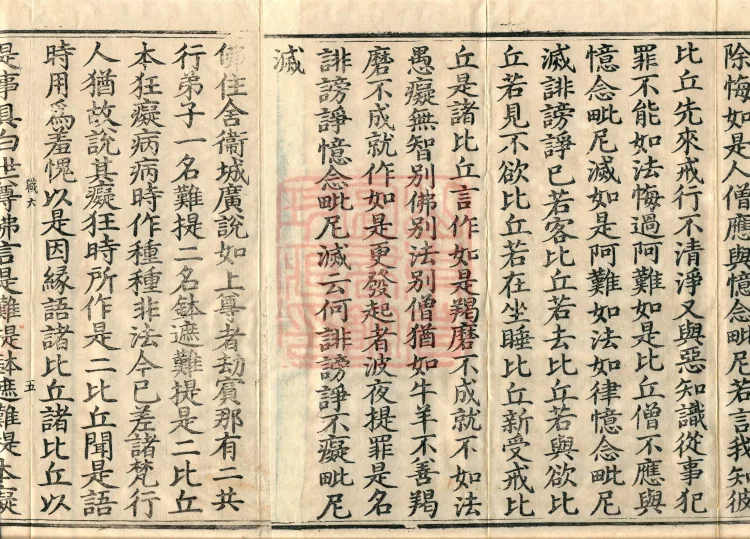 除悔如是人僧應與憶念毗尼若言我知彼
比丘先來戒行不清淨又與惡知識從事犯
罪不能如法悔過阿難如是比丘僧不應與
憶念毗尼滅如是阿難如法如律憶念毗尼
滅誹謗諍已若客比丘若去比丘若與欲比
丘若見不欲比丘若在坐睡比丘新受戒比
丘是諸比丘言作如是羯磨不成就不如法
愚癡無智別佛別法別僧猶如牛羊不善羯
磨不成就作如是更發起者波夜提罪是名
誹謗諍憶念毗尼滅云何誹謗諍不癡毗尼
滅
佛住舍衞城廣說如上尊者劫賓那有二共
行弟子一名難提二名鉢遮難提是二比丘
本狂癡病病時作種種非法今已差諸梵行
人猶故說其癡狂時所作是二比丘聞是語
時用爲羞愧以是因緣語諸比丘諸比丘以
職六
五
是事具白世尊佛言是難提鉢遮難提本癡